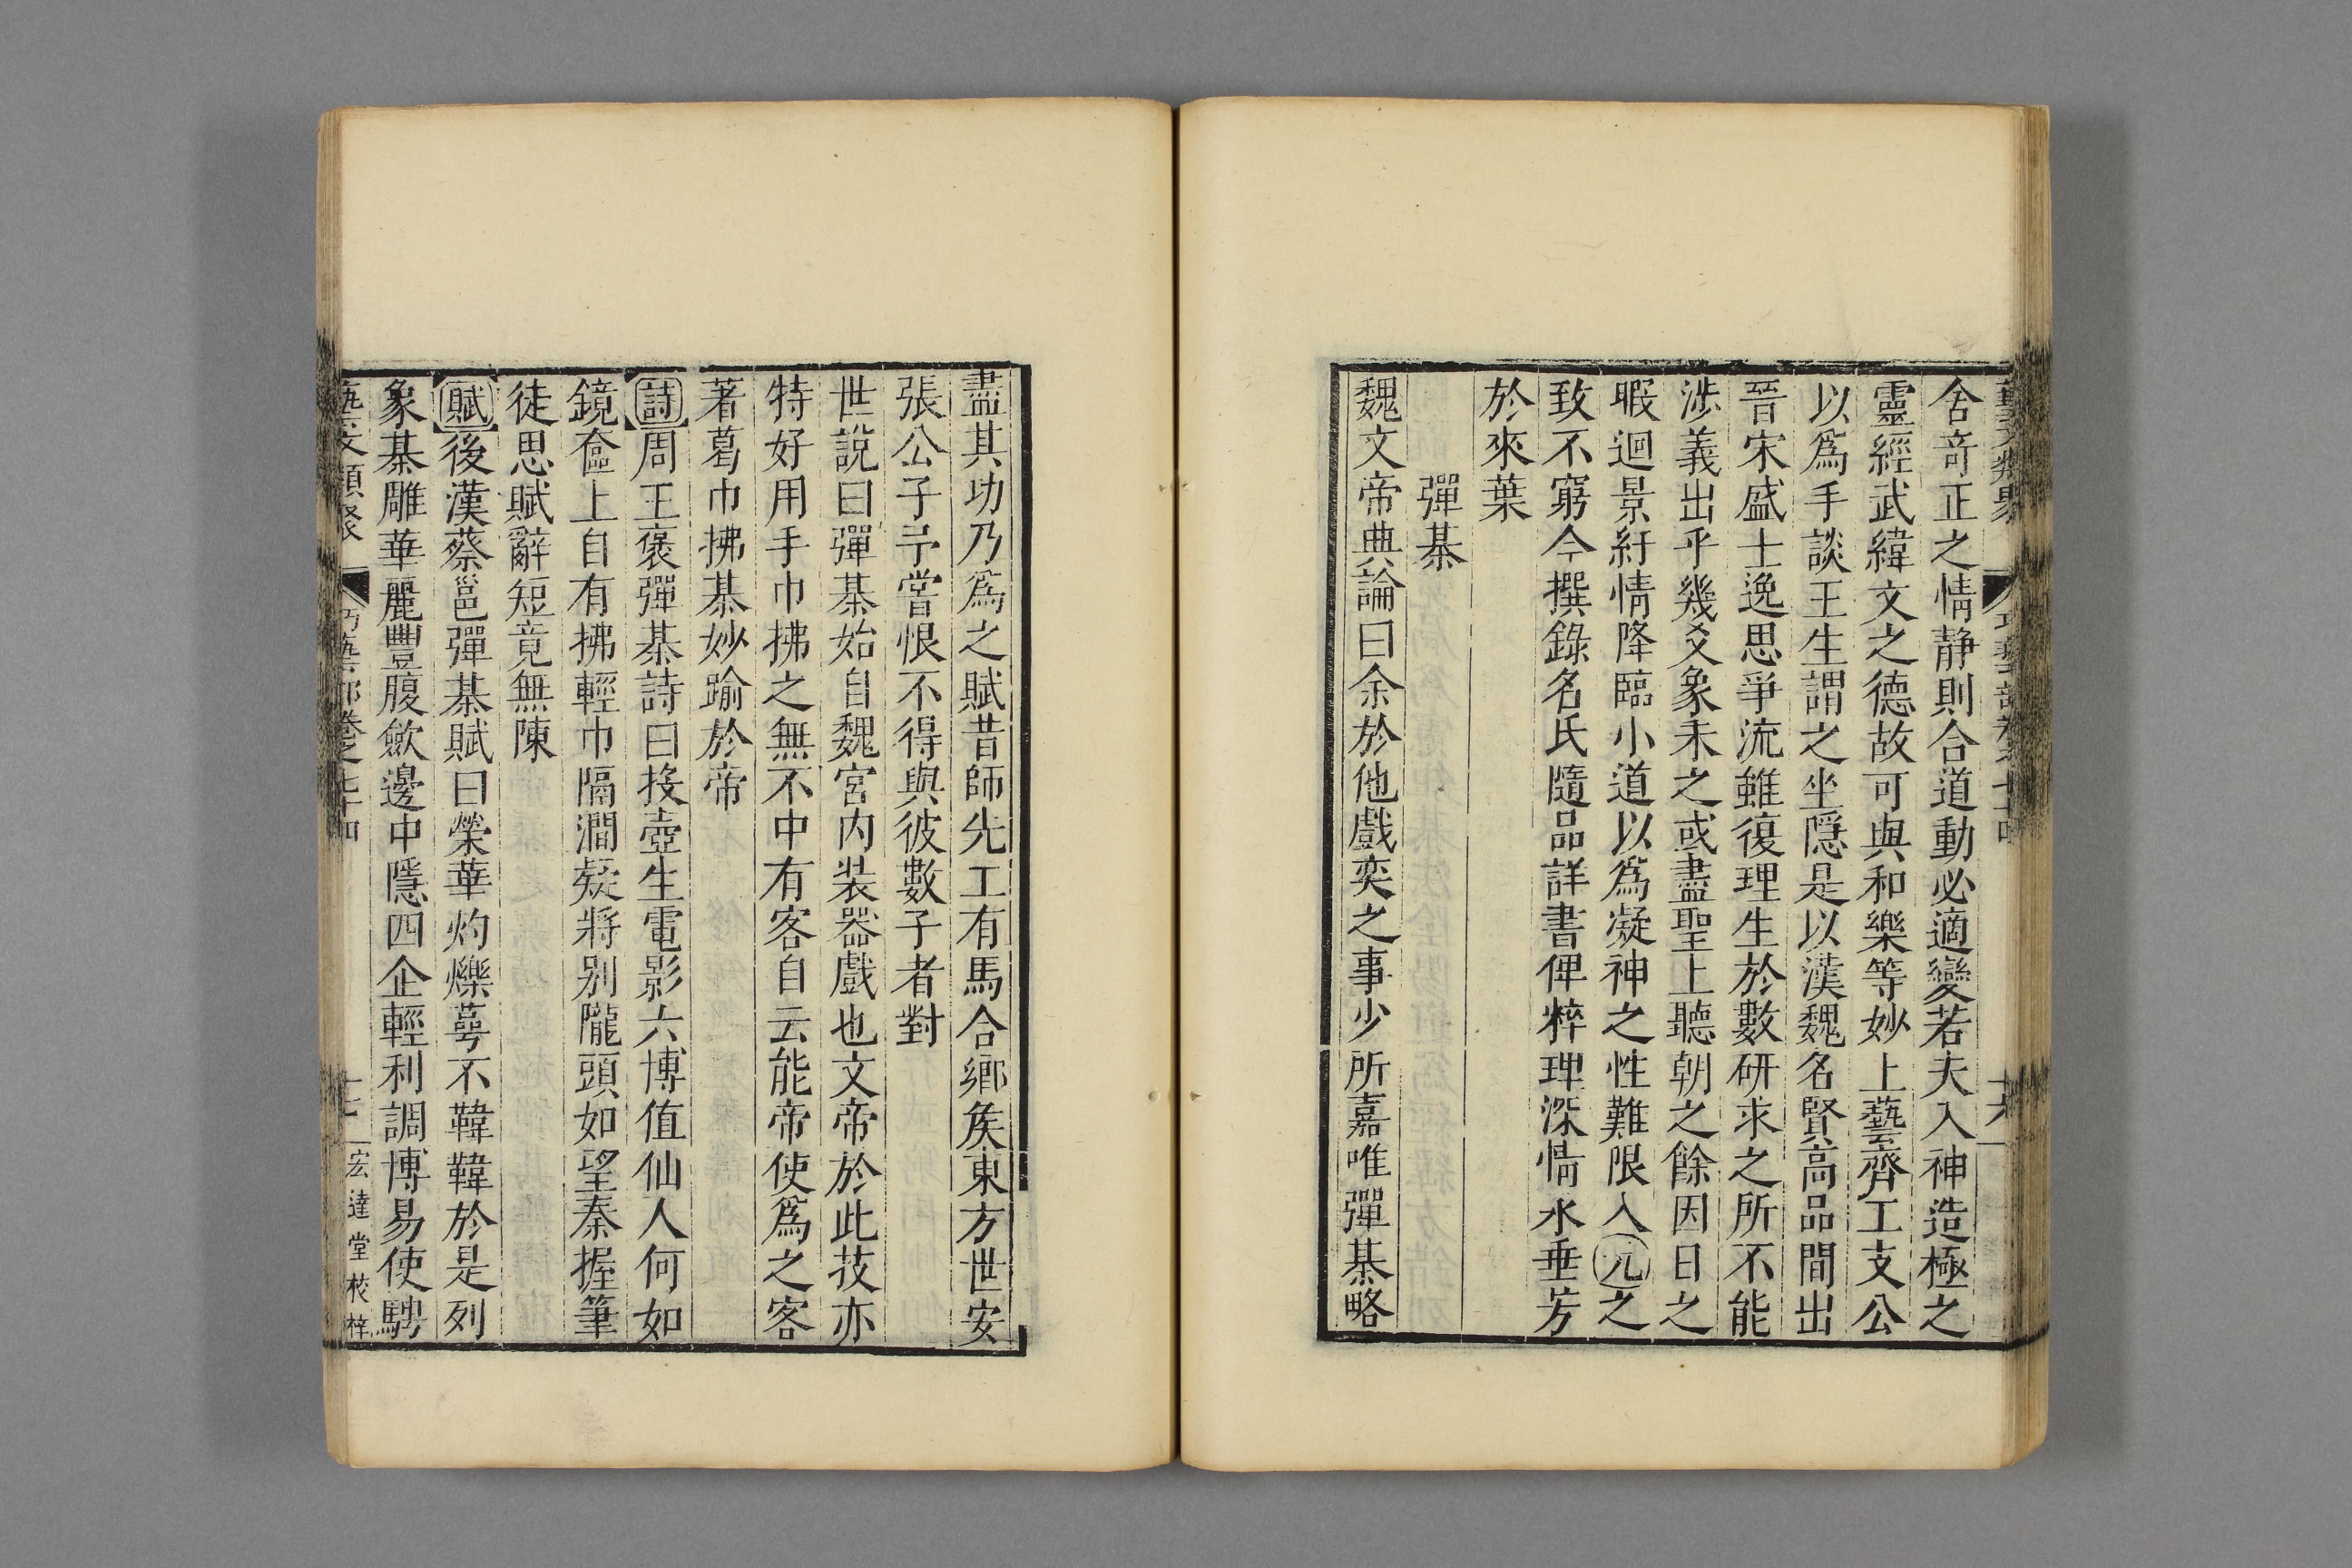 舍奇正之情静則合道動必適變若夫入神造極之
靈經武緯文之德故可與和樂等妙上藝齊工支公
以爲手談王生謂之坐隠是以漢魏名賢高品間出
晉宋盛士逸思爭流雖復理生於數研求之所不能
渉義出乎幾爻象未之或盡聖上聽朝之餘因日之
暇迴景紆情降臨小道以爲凝神之性難限入元之
致不窮今撰錄名氏隨品詳書俾粹理深情永垂芳
於來葉
彈棊
魏文帝典論曰余於他戲奕之事少所嘉唯彈棊略
盡其功乃爲之賦昔師先工有馬合鄉矦東方世安
張公子予嘗恨不得與彼數子者對
世說曰彈棊始自魏宮内装器戲也文帝於此技亦
特好用手巾拂之無不中有客自云能帝使爲之客
著葛巾拂棊妙踰於帝
詩周王褒彈棊詩曰投壺生電影六博值仙人何如
鏡奩上自有拂輕巾隔澗疑將别隴頭如望秦握筆
徒思賦辭短竟無陳
賦後漢蔡邕彈棊賦曰榮華灼爍萼不韡韡於是列
象棊雕華麗豐腹歛邊中隱四企輕利調博易使騁
藝文類聚 巧藝部卷之七十四 宏達堂校梓